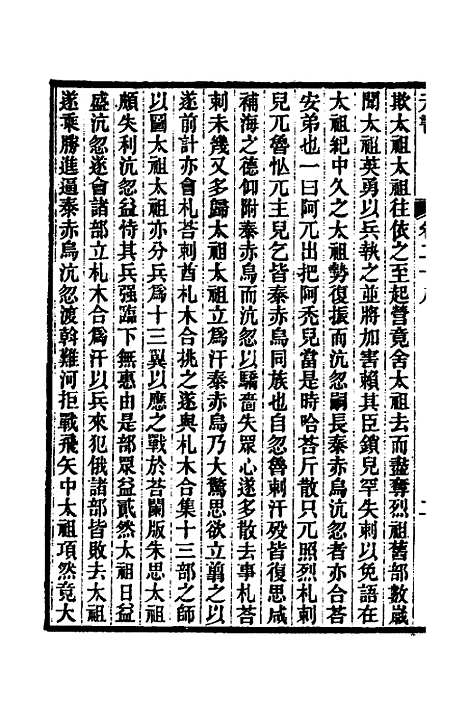 欺太祖太祖往依之至起營竟舍太祖去而盡奪烈祖舊部數歲
聞太祖英勇以兵執之並將加害賴其臣鎖兒罕失剌以免語在
太祖紀中久之太祖勢復振而沆忽嗣長泰赤烏沆忽者亦合荅
安弟也一曰阿兀出把阿禿兒當是時哈荅斤散只兀照烈札剌
兒兀魯怂兀主兒乞皆泰赤烏同族也自忽魯剌汗歿皆復思咸
補海之德仰附泰赤烏而沆忽以驕嗇失眾心遂多散去事札荅
剌未幾又多歸太祖太祖立爲汗泰赤烏乃大驚思欲立翦之以
遂前計亦會札荅剌酋札木合挑之遂與札木合集十三部之師
以圖太祖太祖亦分兵爲十三翼以應之戰於荅闌版朱思太祖
頗失利沆忽益恃其兵强臨下無惠由是部眾益貳然太祖日益
盛沆忽遂會諸部立札木合爲汗以兵來犯俄諸部皆敗去太祖
遂乘勝進逼泰赤烏沆忽渡斡難河拒戰飛矢中太祖項然竟大